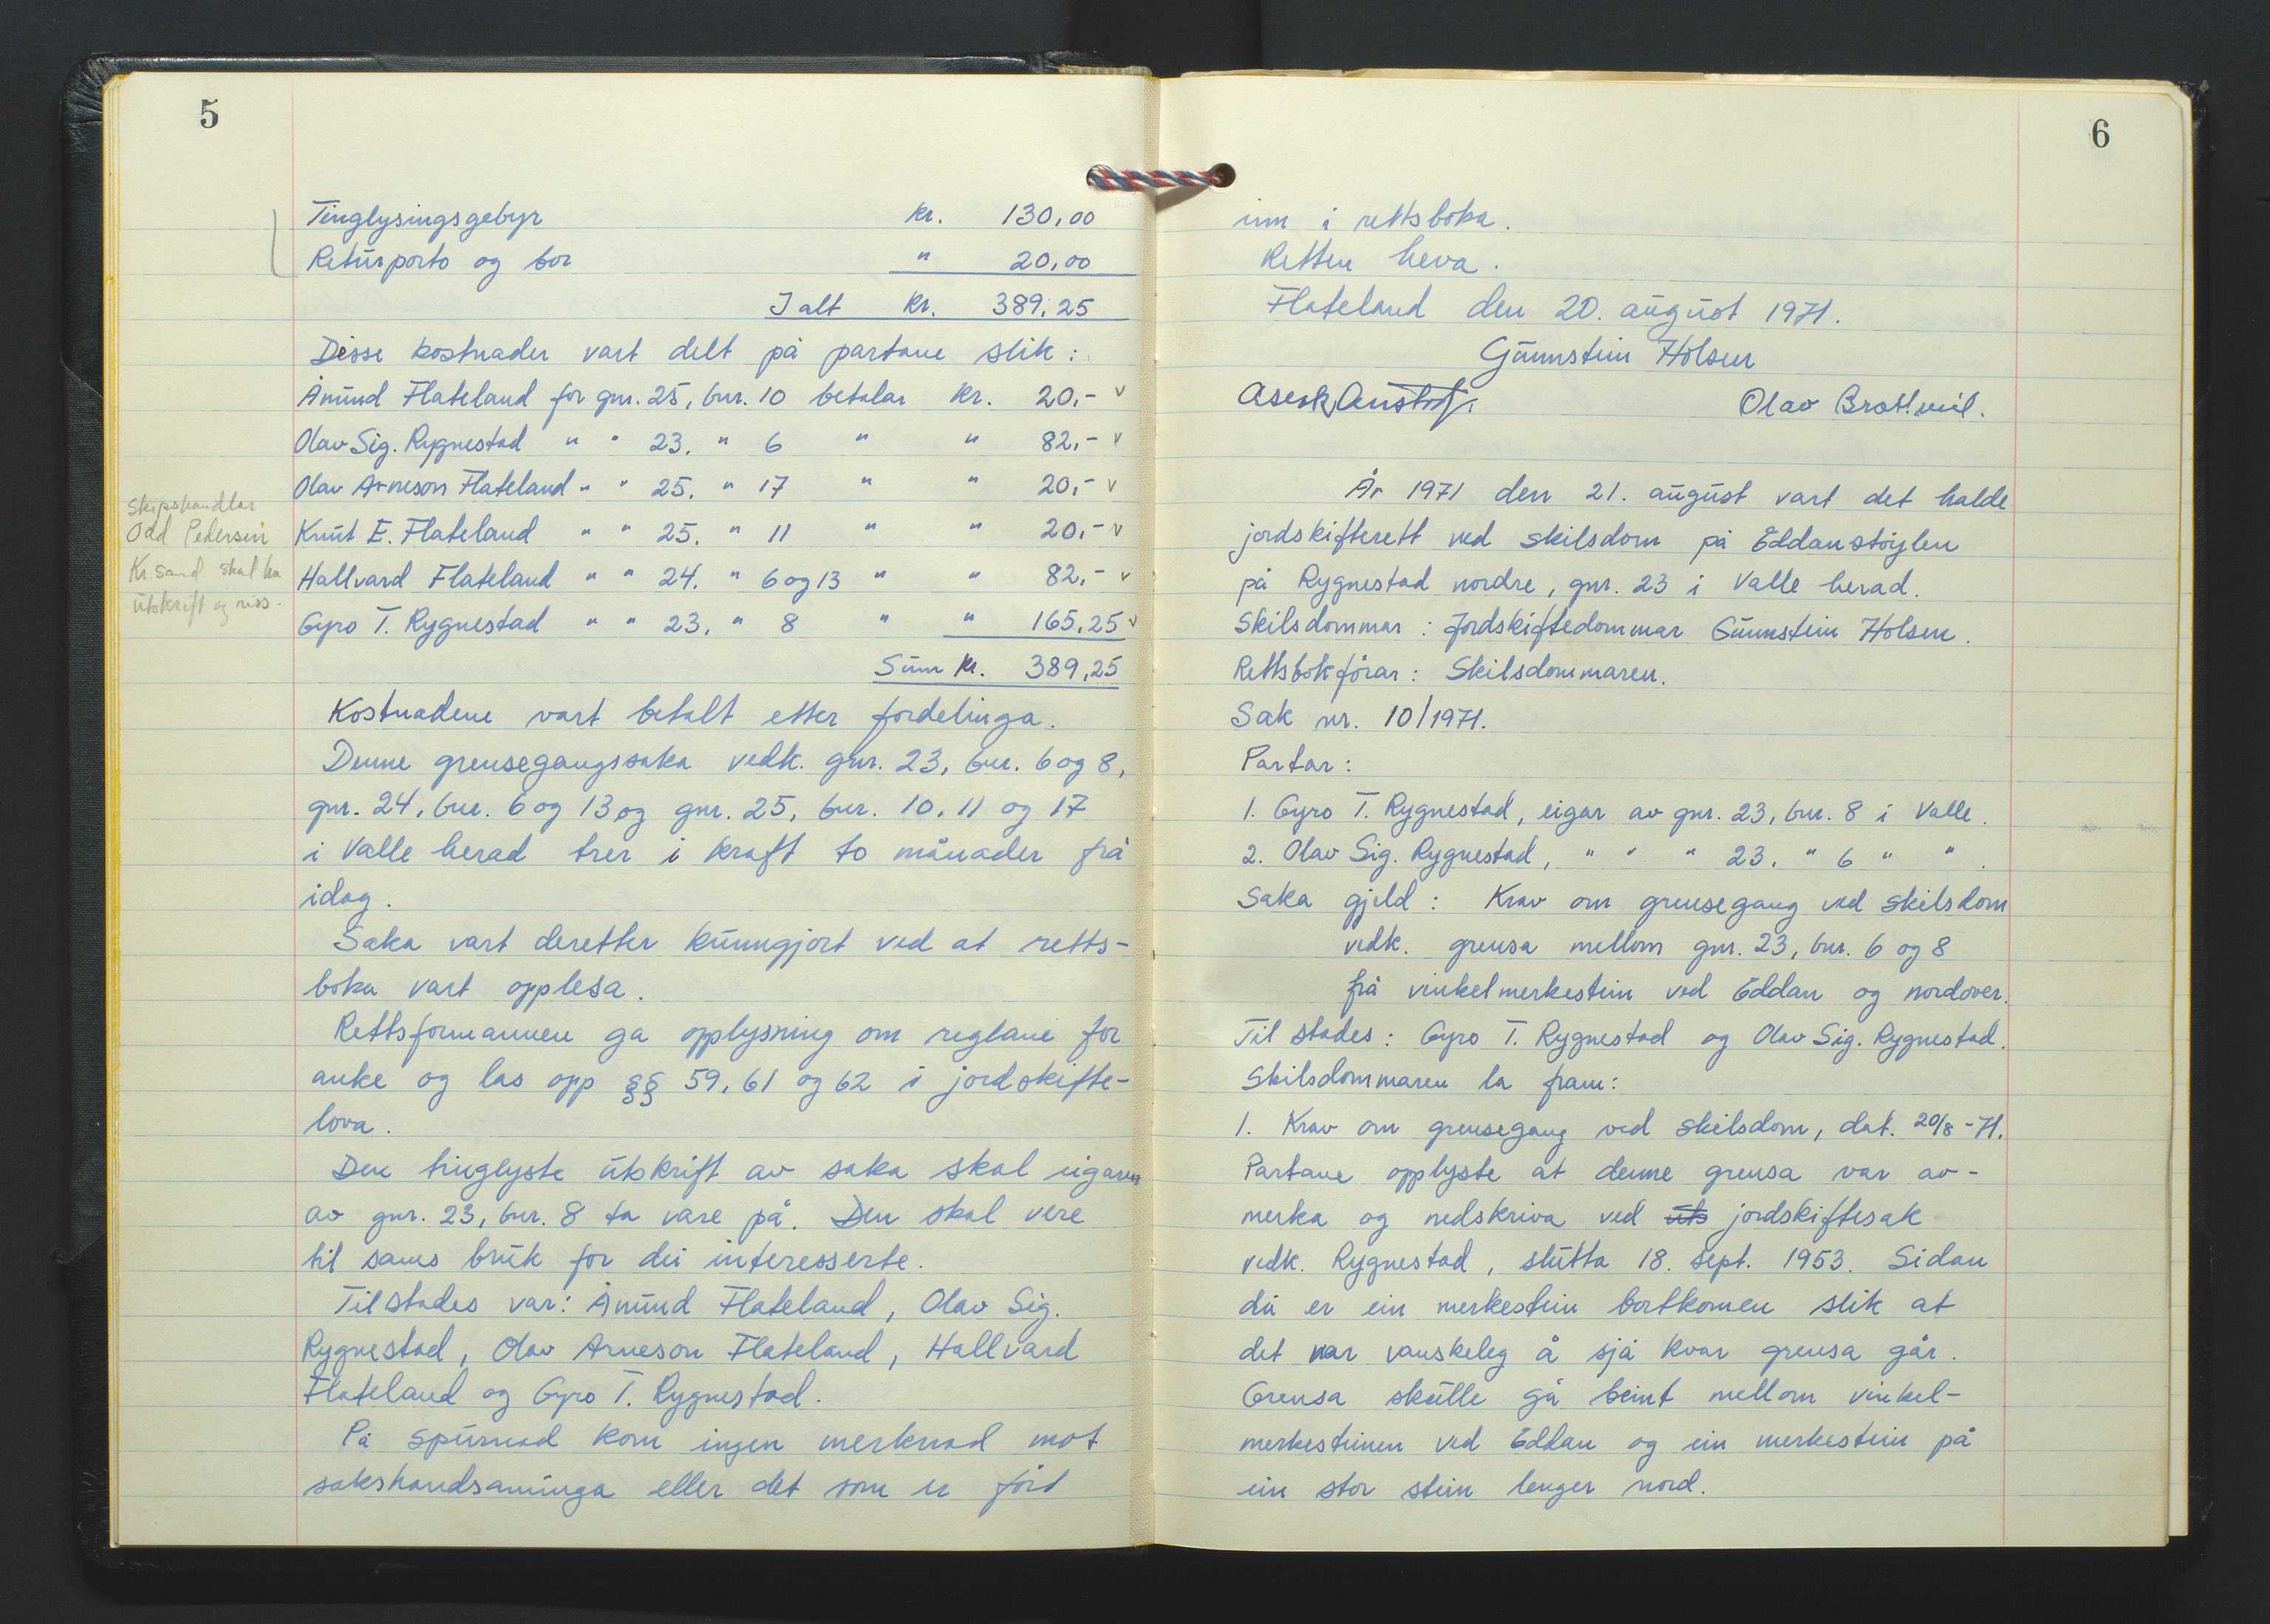 5
Tinglysingsgebyr kr. 130,00
Returporto og bor " 20,00
I alt kr. 389,25
Disse kostnader vart delt på partane slik:
Åmund Flateland for gnr. 25, bnr. 10 betalar kr. 20,- v
Olav Sig. Rygnestad " " 23. " 6 " " 82,- v
Olav Arneson Flateland " " 25. " 17 " " 20,- v
Knut E. Flateland " " 25. " 11 " " 20,- v
Hallvard Flateland " " 24. " 6 og 13 " " 82,- v
Gyro T. Rygnestad " " 23. " 8 " " 165,25 v
Sum kr. 389,25
Skipshandlar
Odd Pedersen
Kr.sand skal ha
utskrift og riss.
Kostnadene vart betalt etter fordelinga.
Denne grensegangssaka vedk. gnr. 23, bnr. 6 og 8,
gnr. 24, bnr. 6 og 13 og gnr. 25, bnr. 10, 11 og 17
i Valle herad trer i kraft to månader frå
idag.
Saka vart deretter kunngjort ved at retts-
boka vart opplesa.
Rettsformannen ga opplysning om reglane for
anke og las opp §§ 59, 61 og 62 i jordskifte-
lova.
Den tinglyste utskrift av saka skal eigaren
av gnr. 23, bnr. 8 ta vare på. Den skal vere
til sams bruk for dei interesserte.
Tilstades var: Åmund Flateland, Olav Sig.
Rygnestad, Olav Arneson Flateland, Hallvard
Flateland og Gyro T. Rygnestad.
På spurnad kom ingen merknad mot
sakshandsaminga eller det som er ført
6
inn i rettsboka.
Retten heva.
Flateland den 20. august 1971.
Gunnstein Holsen
Olav Brottveit.
År 1971 den 21. august vart det halde
jordskifterett ved skilsdom på Eddanstøylen
på Rygnestad nordre, gnr. 23 i Valle herad.
Skilsdommar: Jordskiftedommar Gunnstein Holsen.
Rettsbokførar: Skilsdommaren.
Sak nr. 10/1971.
Partar:
1. Gyro T. Rygnestad, eigar av gnr. 23, bnr. 8 i Valle.
2. Olav Sig. Rygnestad, " " " 23. " 6 " " .
Saka gjeld: Krav om grensegang ved skilsdom
vedk. grensa mellom gnr. 23, bnr. 6 og 8
frå vinkelmerkestein ved Eddan og nordover.
Til stades: Gyro T. Rygnestad og Olav Sig. Rygnestad.
Skilsdommaren la fram:
1. Krav om grensegang ved skilsdom, dat. 20/8-71.
Partane opplyste at denne grensa var av-
merka og nedskriva ved uts jordskiftesak
vedk. Rygnestad, slutta 18. sept. 1953. Sidan
då er ein merkestein bortkomen slik at
det var vanskeleg å sjå kvar grensa går.
Grensa skulle gå beint mellom vinkel-
merkesteinen ved Eddan og ein merkestein på
ein stor stein lenger nord.